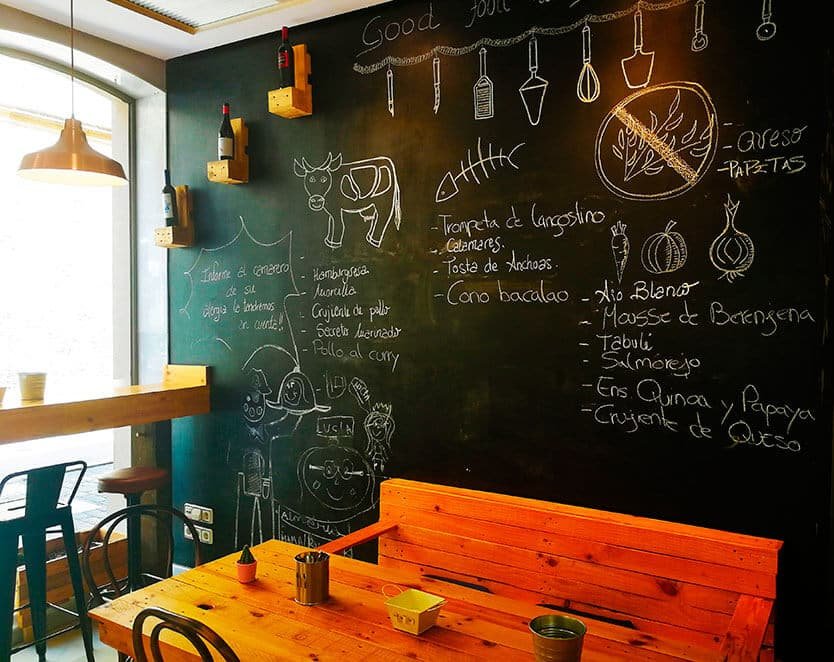 Good food
- QUESO
- PAPETAS
Informe al camarero
de su
alergia le tendremos
en cuenta!!
- Hamburgresa
- Morcilla
- Crujiente de pollo
- Secreto Marinado
- Pollo al curry
- Trompeta de langostino
- Calamares.
- Tosta de Anchoas.
- Cono bacalao
- Ajo Blanco
- Mousse de Berenjena
- Tabulé
- Salmorejo
- Ens Quinoa y Papaya
- Crujiente de Queso
LUCIA